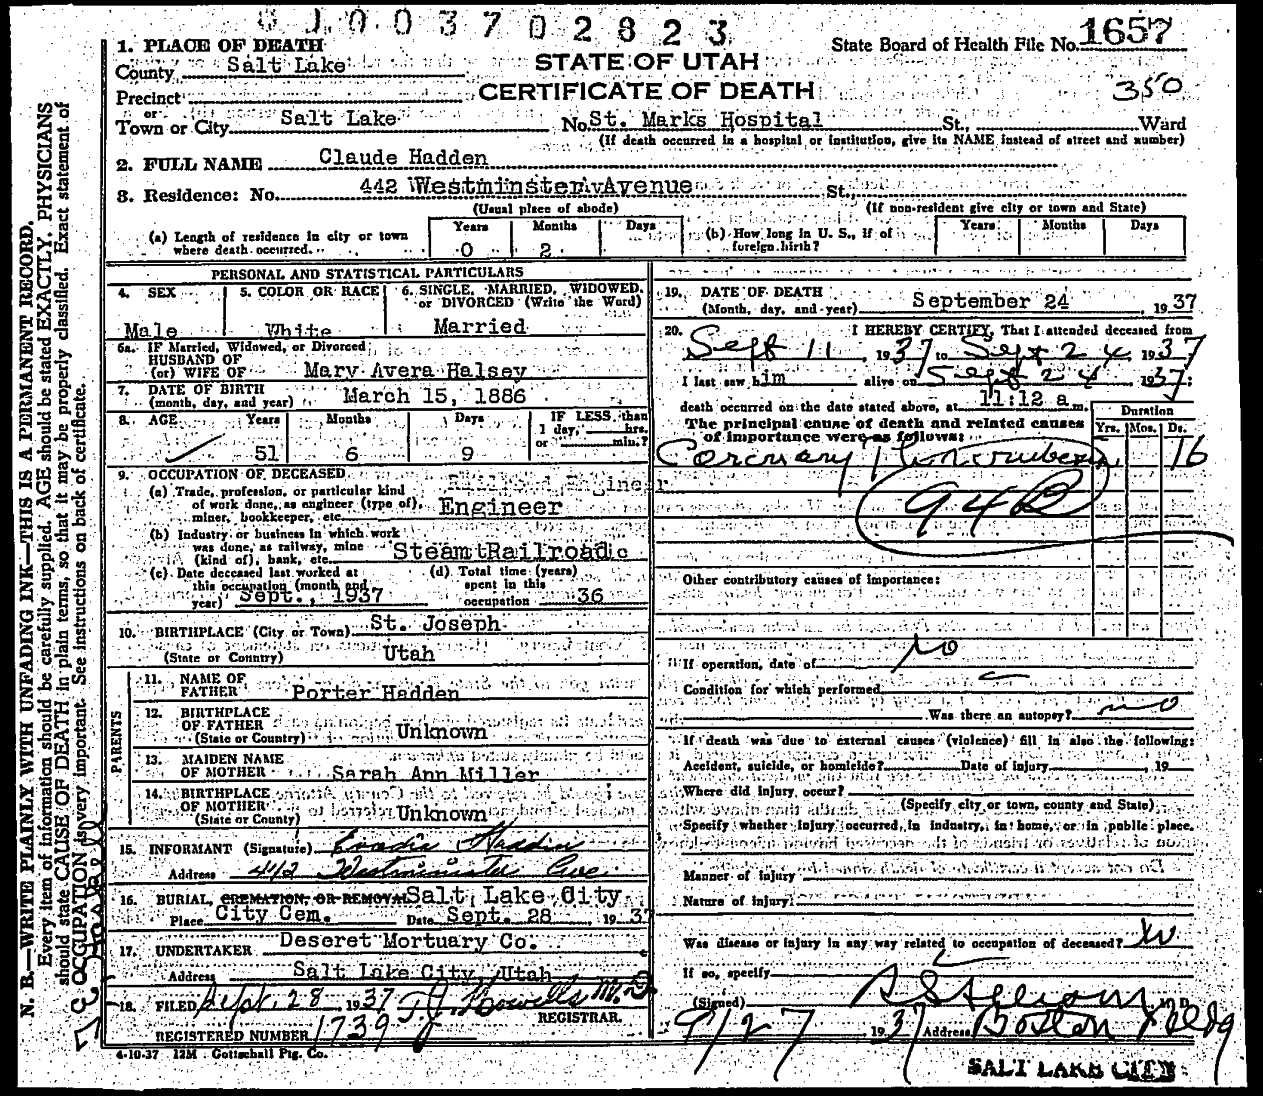 1. PLACE OF DEATH
State Board of Health File No. 1657
County Salt Lake
STATE OF UTAH
Precinct
CERTIFICATE OF DEATH
350
or
Town or City Salt Lake No. St. Marks Hospital St., Ward
(If death occurred in a hospital or institution, give its NAME instead of street and number)
2. FULL NAME Claude Hadden
3. Residence: No. 442 Westminster Avenue St.,
(Usual place of abode) (If non-resident give city or town and State)
(a) Length of residence in city or town where death occurred. Years 0 Months 2 Days
(b) How long in U. S., if of foreign birth? Years Months Days
PERSONAL AND STATISTICAL PARTICULARS
4. SEX Male
5. COLOR OR RACE White
6. SINGLE, MARRIED, WIDOWED, or DIVORCED (Write the Word) Married
6a. IF Married, Widowed, or Divorced
HUSBAND OF
(or) WIFE OF Mary Avera Halsey
7. DATE OF BIRTH
(month, day, and year) March 15, 1886
8. AGE Years 51 Months 6 Days 9 IF LESS than 1 day, hrs. or min.?
9. OCCUPATION OF DECEASED
(a) Trade, profession, or particular kind
of work done, as engineer (type of),
miner, bookkeeper, etc. Engineer
(b) Industry or business in which work
was done, as railway, mine
(kind of), bank, etc. Steam Railroad
(c) Date deceased last worked at
this occupation (month and
year) Sept., 1937
(d) Total time (years)
spent in this
occupation 36
10. BIRTHPLACE (City or Town) St. Joseph
(State or Country) Utah
PARENTS
11. NAME OF
FATHER Porter Hadden
12. BIRTHPLACE
OF FATHER
(State or Country) Unknown
13. MAIDEN NAME
OF MOTHER Sarah Ann Miller
14. BIRTHPLACE
OF MOTHER
(State or County) Unknown
15. INFORMANT (Signature) Hadden
Address 442 Westminster Ave.
16. BURIAL, CREMATION, OR REMOVAL Salt Lake City
Place City Cem. Date Sept. 28 1937
17. UNDERTAKER Deseret Mortuary Co.
Address Salt Lake City, Utah
18. FILED Sept. 28 1937 T. J. Howells M.D.
REGISTRAR.
REGISTERED NUMBER 1739
4-10-37 12M Gottschall Ptg. Co.
19. DATE OF DEATH
(Month, day, and year) September 24 1937
20. I HEREBY CERTIFY, That I attended deceased from
Sept 11, 1937 to Sept 24, 1937
I last saw him alive on Sept 24 1937:
death occurred on the date stated above, at 11:12 a m.
The principal cause of death and related causes
of importance were as follows:
Duration
Yrs. Mos. Ds.
Coronary Thrombosis 16
94B
Other contributory causes of importance:
If operation, date of No
Condition for which performed
Was there an autopsy? no
If death was due to external causes (violence) fill in also the following:
Accident, suicide, or homicide? Date of injury , 19
Where did injury occur?
(Specify city or town, county and State)
Specify whether injury occurred in industry, in home, or in public place.
Manner of injury
Nature of injury
Was disease or injury in any way related to occupation of deceased? No
If so, specify
(Signed) M. D.
9/27 1937 Address Boston Bldg
SALT LAKE CITY
N. B.—WRITE PLAINLY WITH UNFADING INK—THIS IS A PERMANENT RECORD.
Every item of information should be carefully supplied. AGE should be stated EXACTLY. PHYSICIANS
should state CAUSE OF DEATH in plain terms, so that it may be properly classified. Exact statement of
OCCUPATION is very important. See instructions on back of certificate.